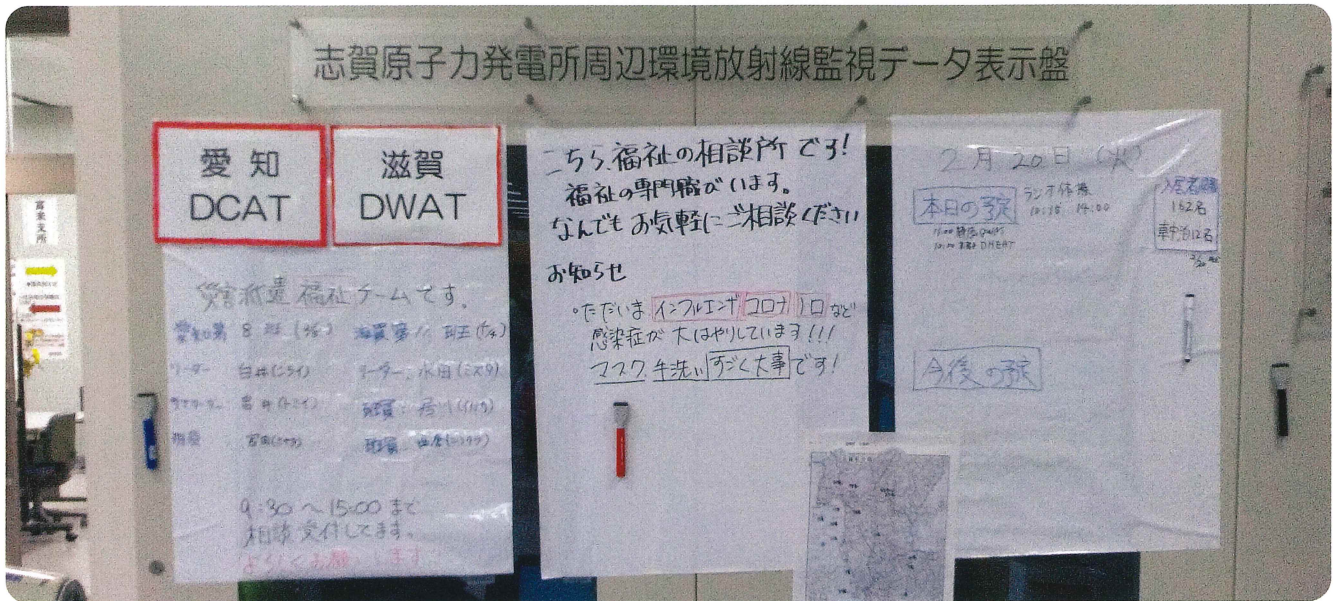 志賀原子力発電所周辺環境放射線監視データ表示盤
愛知
DCAT
滋賀
DWAT
災害派遣福祉チームです。
愛知第 8 班
滋賀第11班
リーダー 白井
リーダー:水田
班員:
班員:
9:30〜15:00まで
相談受付してます。
よろしくお願いします
こちら、福祉の相談所です!
福祉の専門職がいます。
なんでもお気軽にご相談ください
お知らせ
・ただいまインフルエンザコロナノロなど
感染症が大はやりしています!!!
マスク、手洗いすごく大事です!
2月20日(火)
本日の予定
ラジオ体操
10:15 14:00
今後の予定
152名
車中泊12名